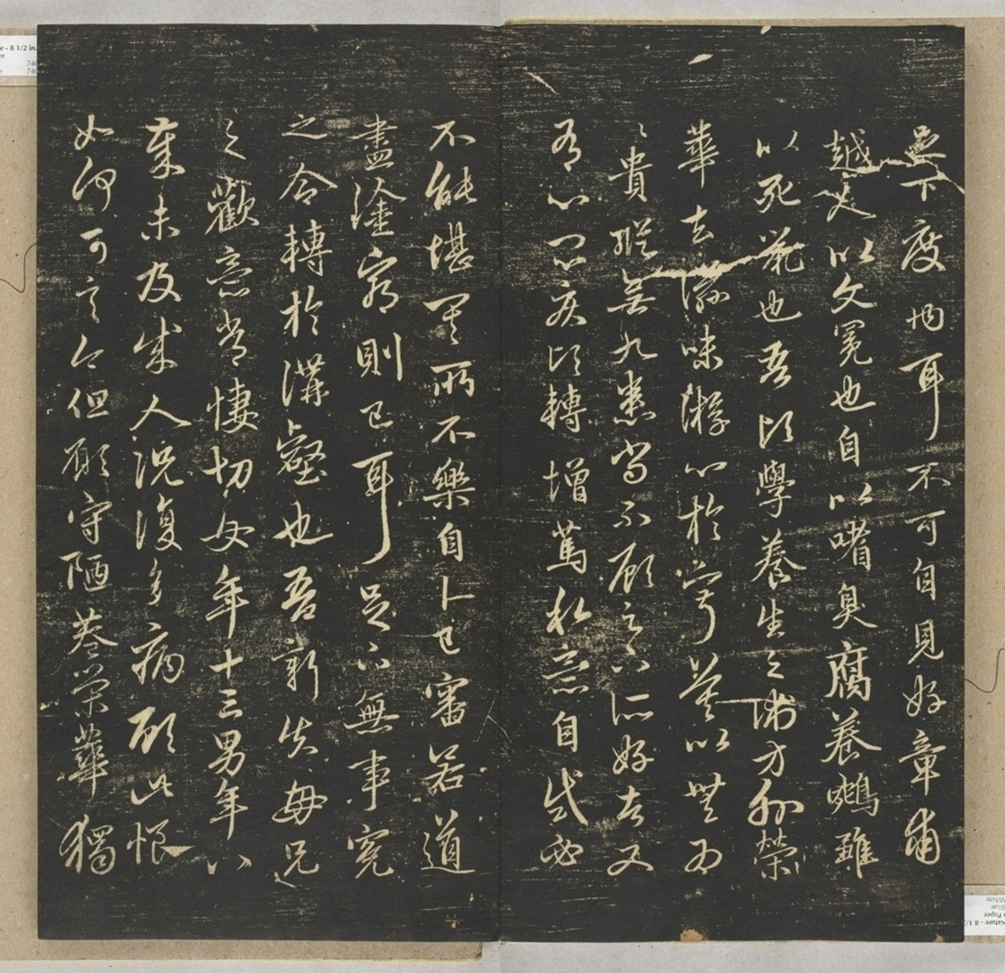 足下度内耳不可自見好章甫
越人以文冕也自以嗜臭腐養鵷雛
以死鼠也吾頃學養生之術方外榮
華去滋味游心於寂莫以無為
〻貴縱無九患尚不顧足下所好者又
有心悶疾頃轉增篤私意自試必
不能堪其所不樂自卜已審若道
盡塗窮則已耳足下無事冤
之令轉於溝壑也吾新失母兄
之歡意常悽切女年十三男年八
歲未及成人況復多病顧此悢
如何可言今但願守陋巷榮華獨